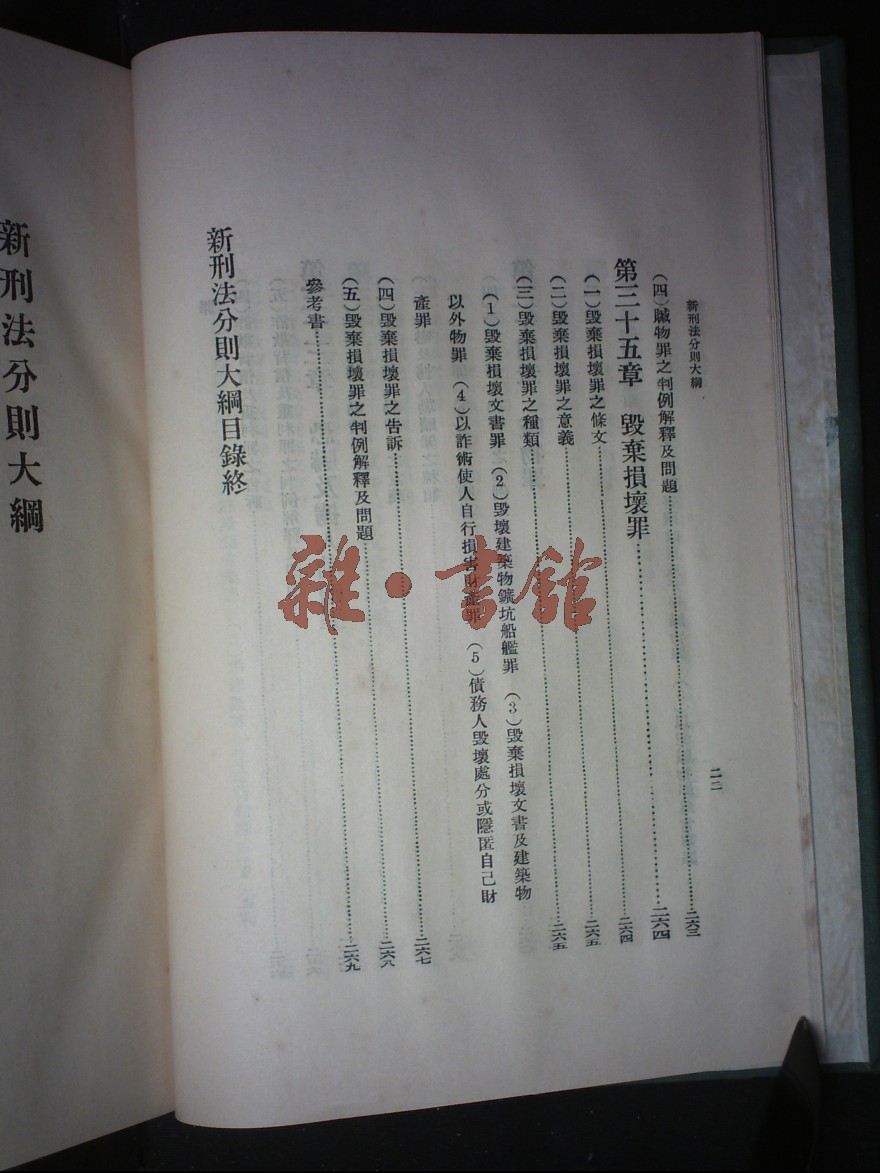 新刑法分則大綱
二二
(四)贓物罪之判例解釋及問題……二六三
第三十五章 毀棄損壞罪……二六四
(一)毀棄損壞罪之條文……二六四
(二)毀棄損壞罪之意義……二六五
(三)毀棄損壞罪之種類……二六五
(1)毀棄損壞文書罪 (2)毀壞建築物鑛坑船艦罪 (3)毀棄損壞文書及建築物
以外物罪 (4)以詐術使人自行損害財產罪 (5)債務人毀壞處分或隱匿自己財
產罪
(四)毀棄損壞罪之告訴……二六七
(五)毀棄損壞罪之判例解釋及問題……二六八
參考書……二六九
新刑法分則大綱目錄終
新刑法分則大綱
雜·書館